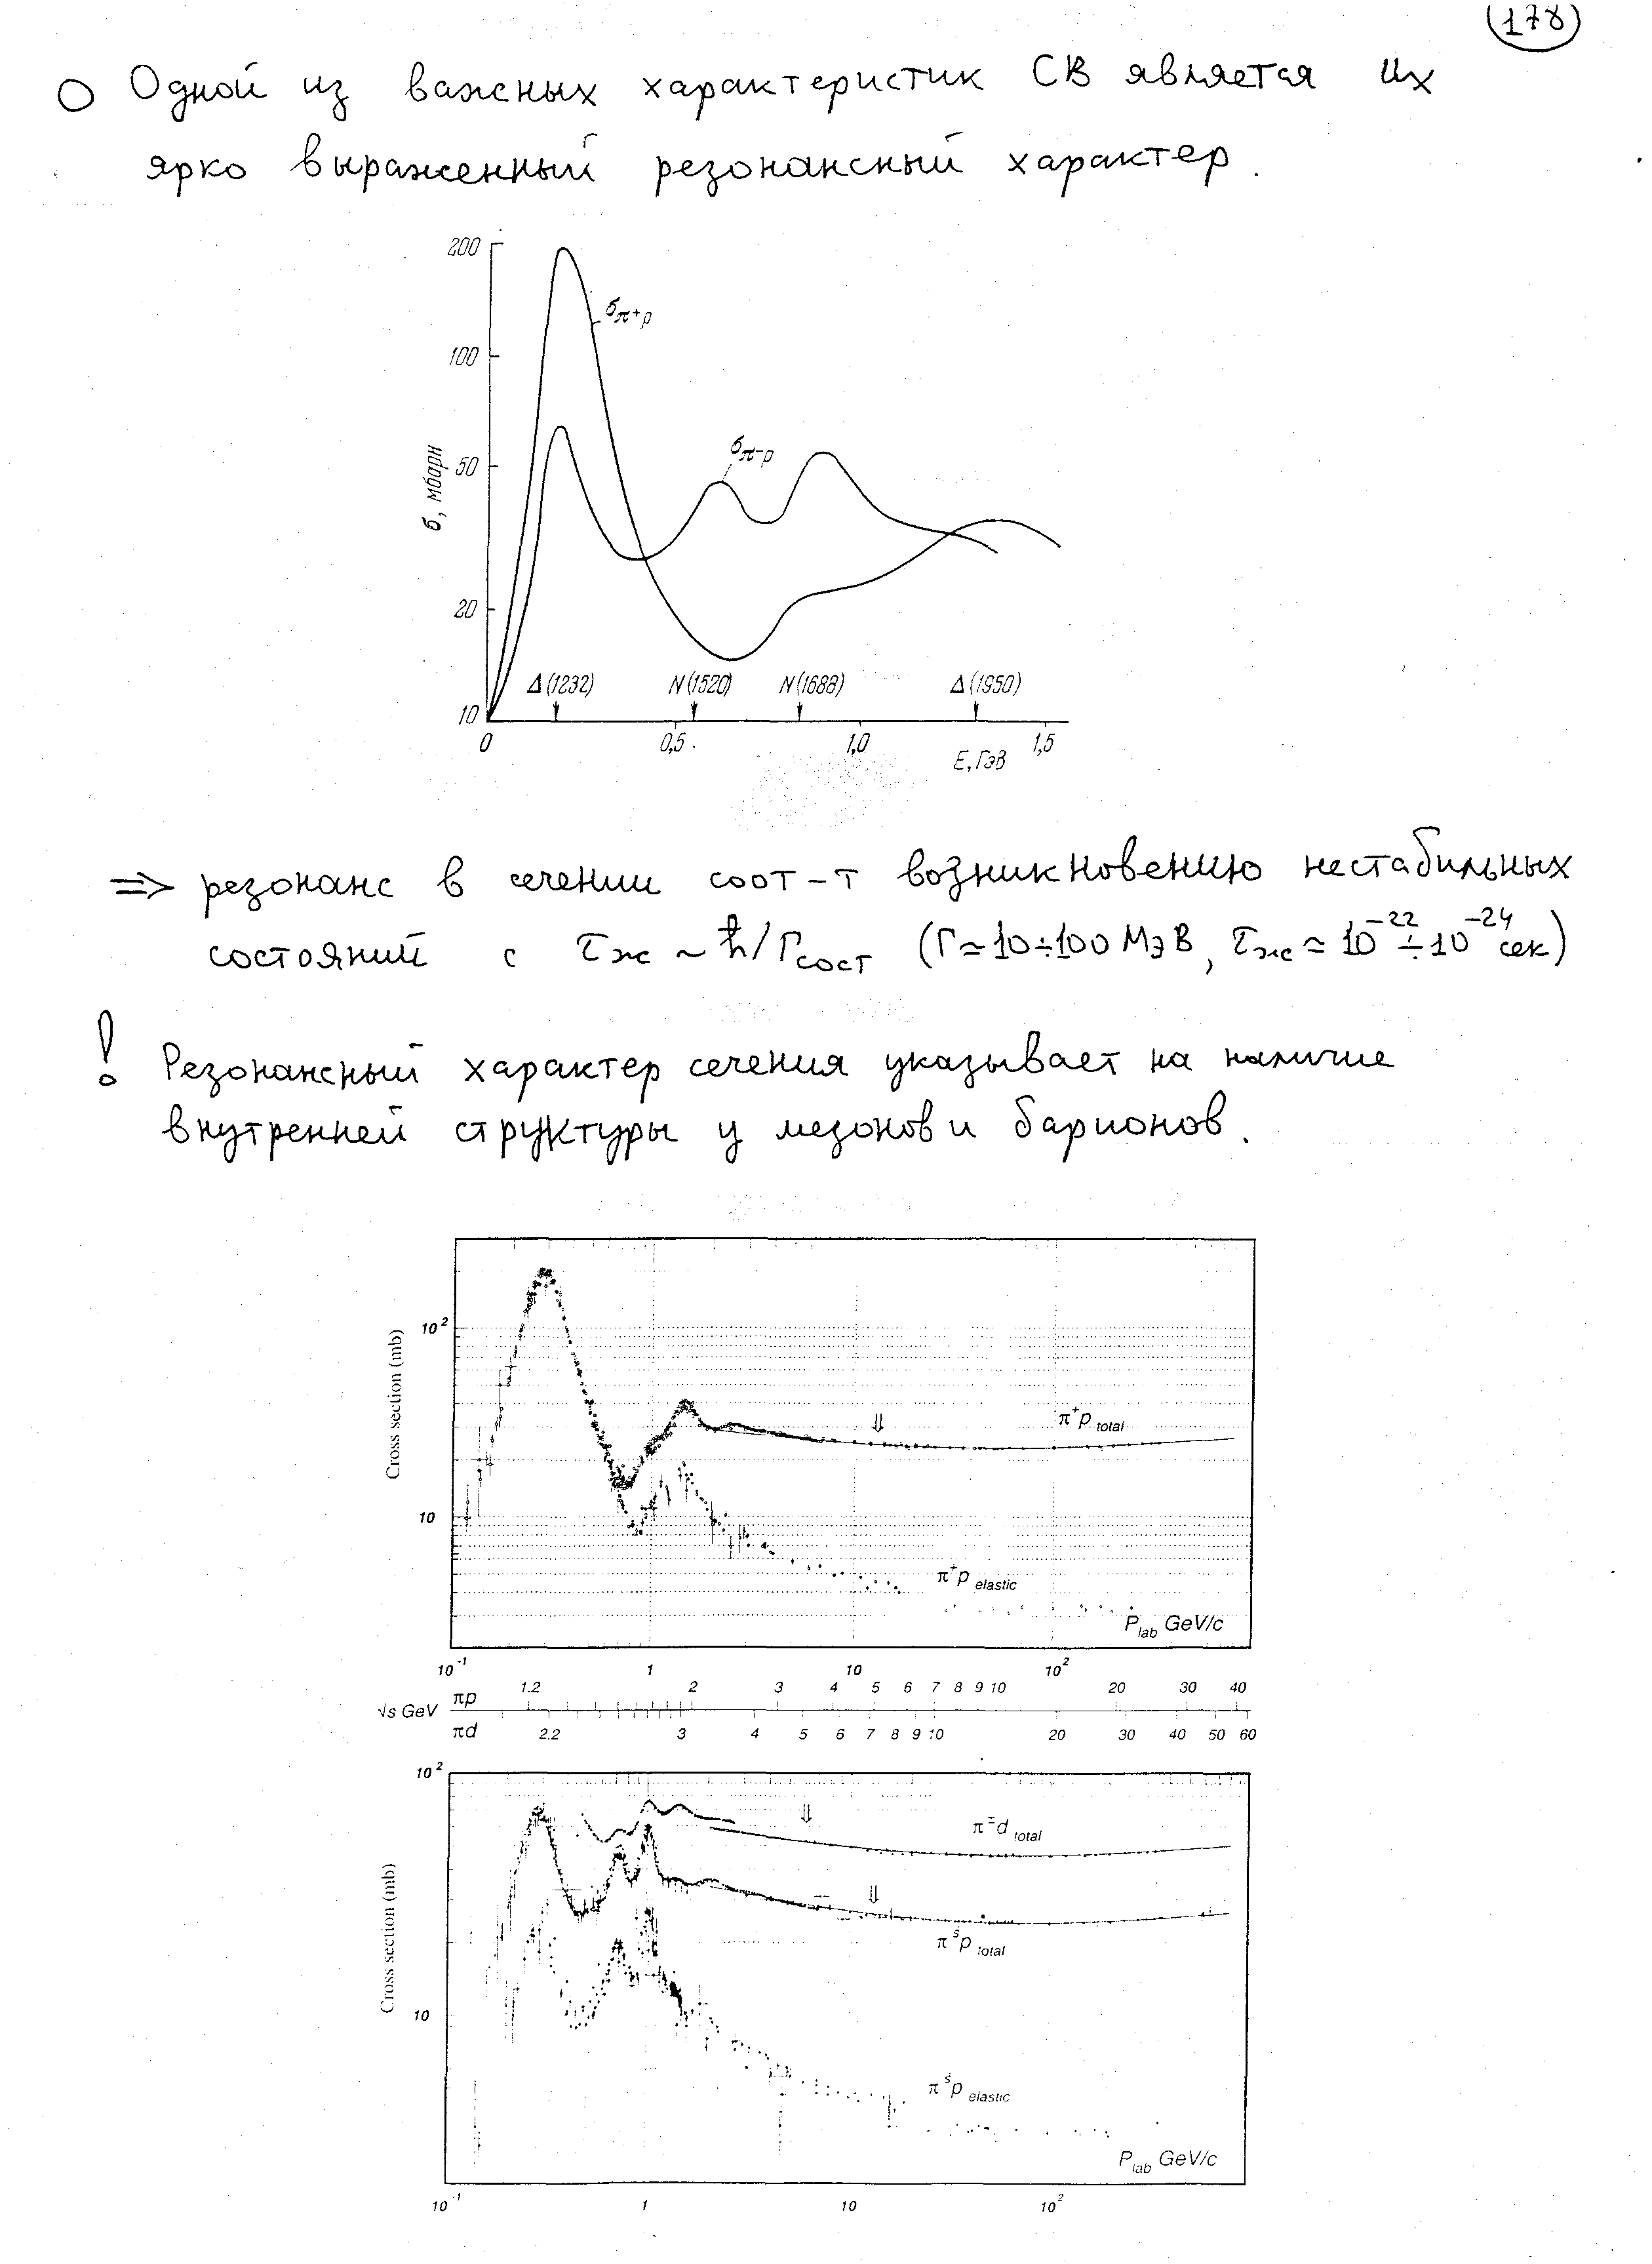 178
Одной из важных характеристик СВ является их
ярко выраженный резонансный характер.
200
σπ+p
100
σπ-p
50
σ, мбарн
20
Δ(1232) N(1520) N(1688) Δ(1950)
10
0 0,5 1,0 1,5
E, ГэВ
=> резонанс в сечении соот-т возникновению нестабильных
состояний с τж ~ ħ/Гсост (Г≃10÷100 МэВ, τж ≃ 10^-22 ÷ 10^-24 сек)
! Резонансный характер сечения указывает на наличие
внутренней структуры у мезонов и барионов.
10^2
Cross section (mb)
⇓
π+p total
10
π+p elastic
P lab GeV/c
10^-1 1 10 10^2
πp 1.2 2 3 4 5 6 7 8 9 10 20 30 40
√s GeV
πd 2.2 3 4 5 6 7 8 9 10 20 30 40 50 60
10^2
⇓
π-d total
Cross section (mb)
⇓
πsp total
10
πsp elastic
P lab GeV/c
10^-1 1 10 10^2